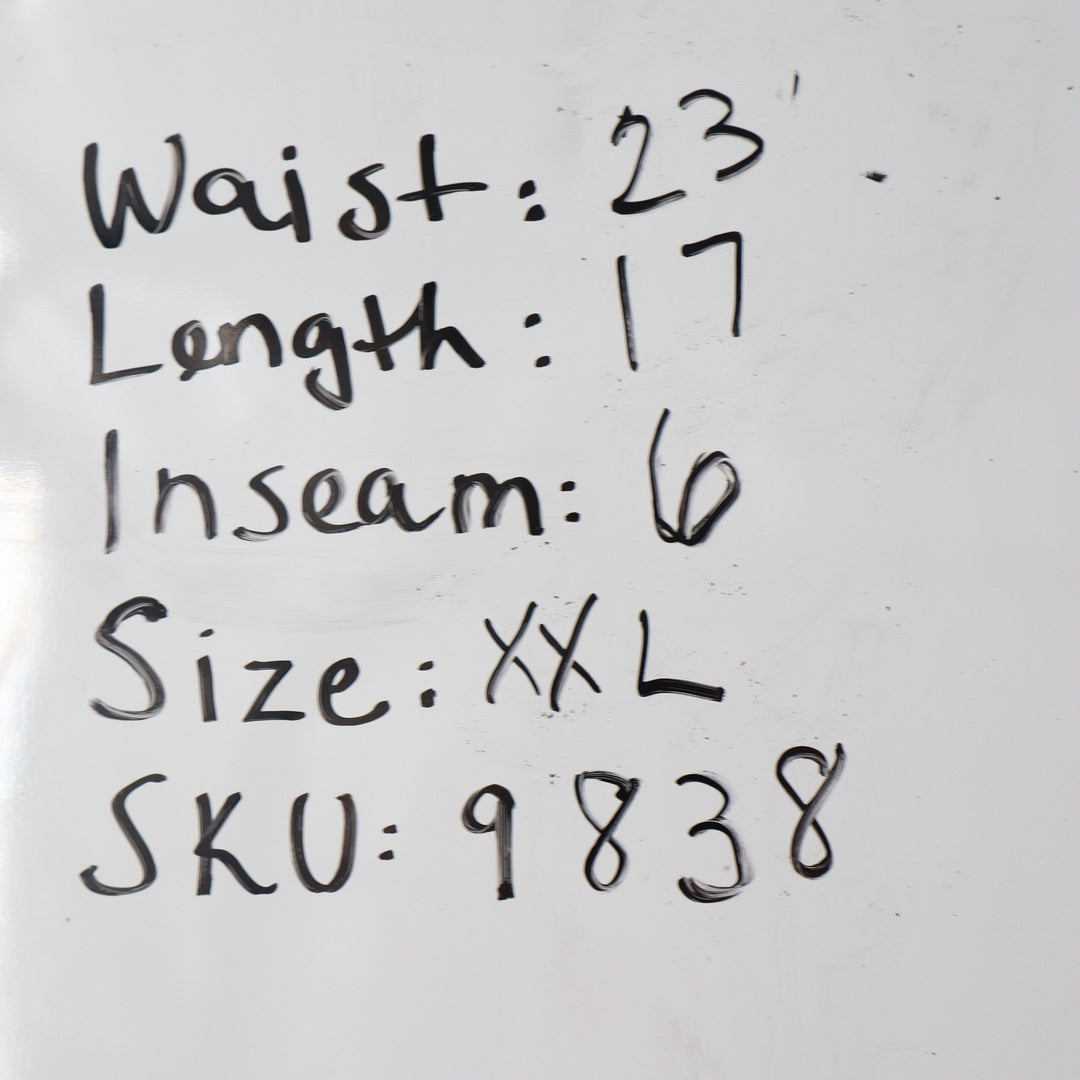 Waist: 23
Length: 17
Inseam: 6
Size: XXL
SKU: 9838